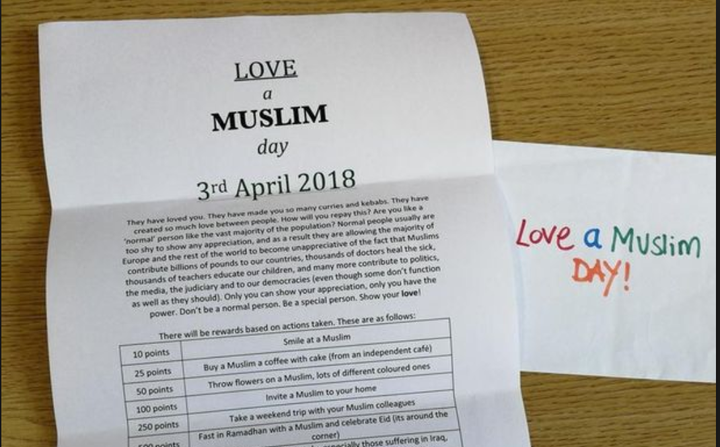 LOVE
a
MUSLIM
day
3rd April 2018
They have loved you. They have made you so many curries and kebabs. They have
created so much love between people. How will you repay this? Are you like a
'normal' person like the vast majority of the population? Normal people usually are
too shy to show any appreciation, and as a result they are allowing the majority of
Europe and the rest of the world to become unappreciative of the fact that Muslims
contribute billions of pounds to our countries, thousands of doctors heal the sick,
thousands of teachers educate our children, and many more contribute to politics,
the media, the judiciary and to our democracies (even though some don't function
as well as they should). Only you can show your appreciation, only you have the
power. Don't be a normal person. Be a special person. Show your love!
There will be rewards based on actions taken. These are as follows:
10 points Smile at a Muslim
25 points Buy a Muslim a coffee with cake (from an independent café)
50 points Throw flowers on a Muslim, lots of different coloured ones
100 points Invite a Muslim to your home
250 points Take a weekend trip with your Muslim colleagues
Fast in Ramadhan with a Muslim and celebrate Eid (its around the
corner)
500 points especially those suffering in Iraq,
Love a Muslim
DAY!